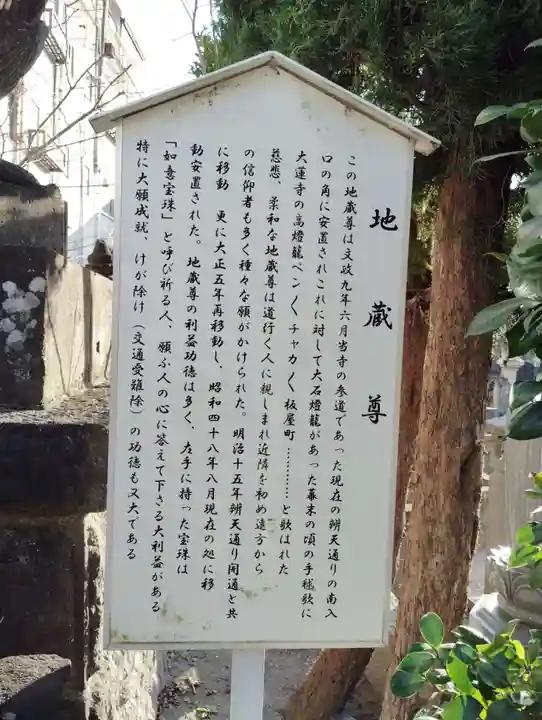 地蔵尊
この地蔵尊は文政九年六月当寺の参道であった現在の辨天通りの南入
口の角に安置されこれに対して大石燈籠があった幕末の頃の手毬歌に
大蓮寺の高燈籠ペン〱チャカ〱板屋町…………と歌はれた
慈悲、柔和な地蔵尊は道行く人に親しまれ近隣を初め遠方から
の信仰者も多く種々な願がかけられた。明治十五年辨天通り開通と共
に移動 更に大正五年再移動し、昭和四十八年八月現在の処に移
動安置された。地蔵尊の利益功徳は多く、左手に持った宝珠は
「如意宝珠」と呼び祈る人、願ふ人の心に答えて下さる大利益がある
特に大願成就、けが除け（交通受難除）の功徳も又大である